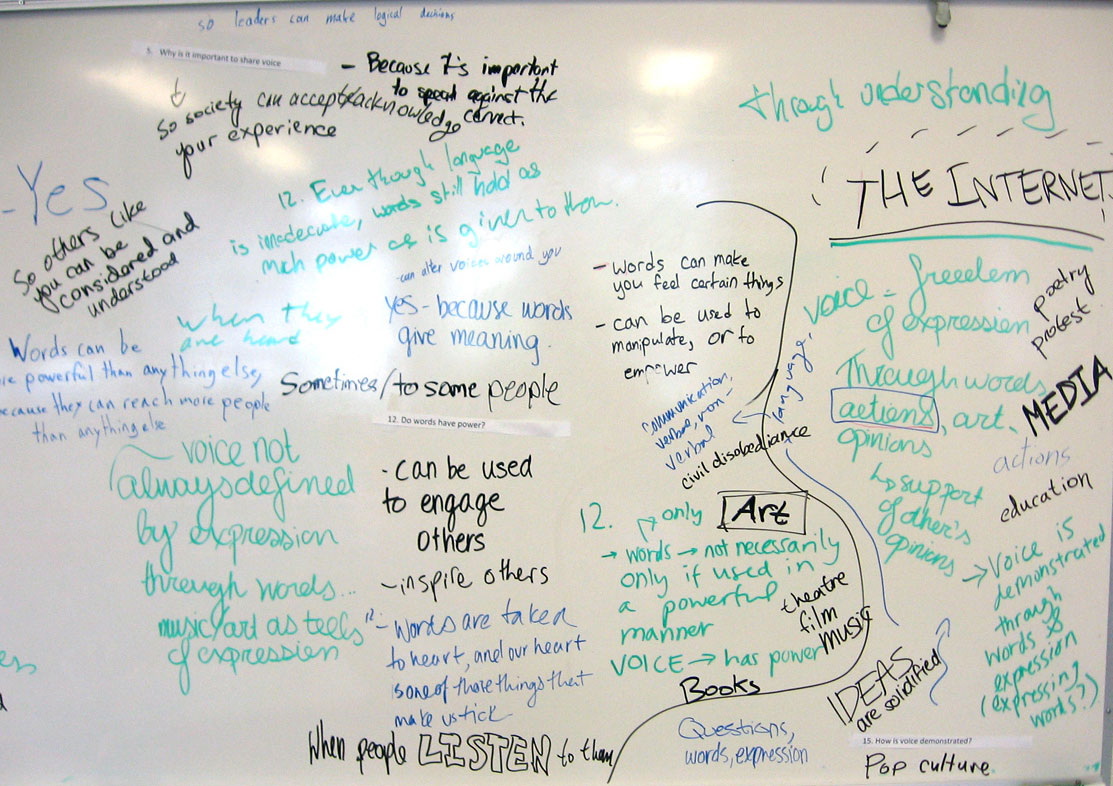 so leaders can make logical decisions
5. Why is it important to share voice
- Because it's important
to speak against the
correct.
so society can accept/acknowledge
your experience
- Yes
So others like
you can be
considered and
understood
12. Even though language
is inadecuate, words still hold as
much power as is given to them.
- can alter voices around you
when they
are heard
yes - because words
give meaning.
Words can be
powerful than anything else,
because they can reach more people
than anything else
Sometimes/to some people
12. Do words have power?
voice not
always defined
by expression
through words...
music/art as tools
of expression
- can be used
to engage
others
- inspire others
12 - Words are taken
to heart, and our heart
is one of those things that
make us tick
When people LISTEN to them
- words can make
you feel certain things
- can be used to
manipulate, or to
empower
communication,
verbal, non-
verbal
language,
civil disobediance
12. only
Art
→ words → not necessarily
only if used in
a powerful
manner
VOICE → has power
theatre
film
music
Books
Questions,
words, expression
through understanding
THE INTERNET
voice = freedom
of expression
Through words,
actions, art,
opinions
↳ support
of other's
opinions
poetry
protest
MEDIA
actions
education
→ Voice is
demonstrated
through
words &
expression
(expressing
words?)
IDEAS
are solidified
15. How is voice demonstrated?
Pop culture.